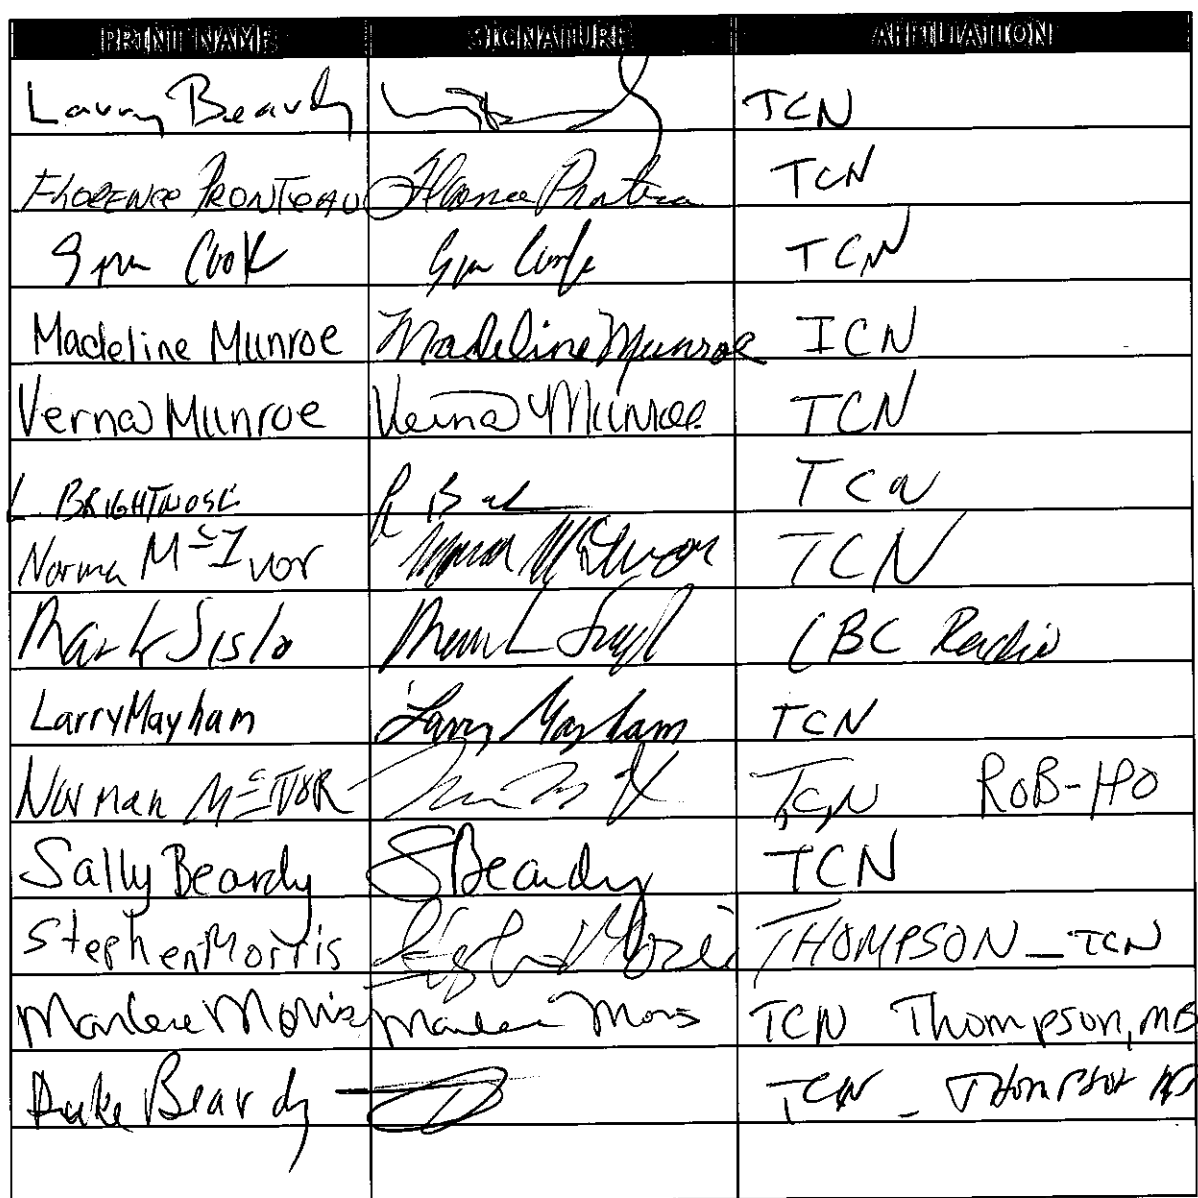 PRINT NAME SIGNATURE AFFILIATION
Larry Beardy TCN
FLORENCE PRONTEAU Florence Pronteau TCN
Cook TCN
Madeline Munroe Madeline Munroe ICN
Verna Munroe Verna Munroe TCN
L. BRIGHTNOSE TCN
Norma McIvor Norma McIvor TCN
Mark CBC Radio
Larry Mayham Larry Mayham TCN
Norman McIVOR TCN ROB-HO
Sally Beardy SBeardy TCN
Stephen Morris Stephen Morris THOMPSON - TCN
Marlene Morris Marlene Morris TCN Thompson, MB
Duke Beardy TCN - THOMPSON MB